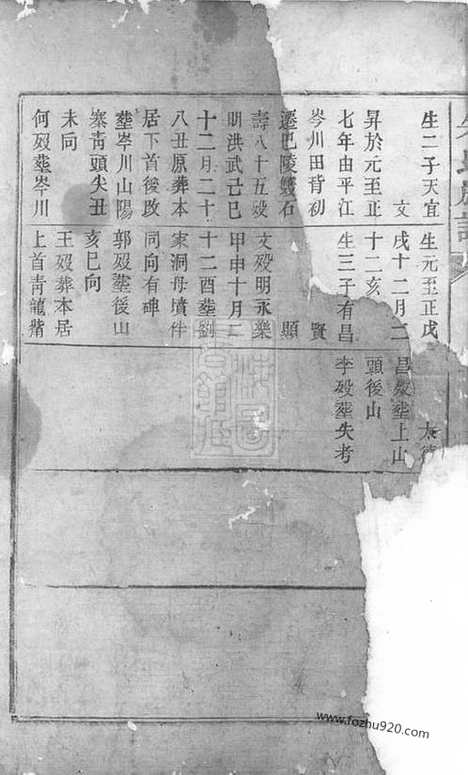 生二子天宜
文
昇於元至正
七年由平江
岑川田背刱
遷巴陵雙石
壽八十五歿
明洪武己巳
十二月二十
八丑原葬本
居下首後改
塟岑川山陽
寨靑頭尖丑
未向
何歿塟岑川
生元至正戊
戌十二月二
十二亥
生三子有昌
賢
顯
文歿明永樂
甲申十月二
十二酉塟劉
家洞母墳伴
同向有碑
郭歿塟後山
亥巳向
王歿葬本居
上首靑龍觜
昌歿塟上山
頭後山
李歿塟失考
www.fozhu920.com